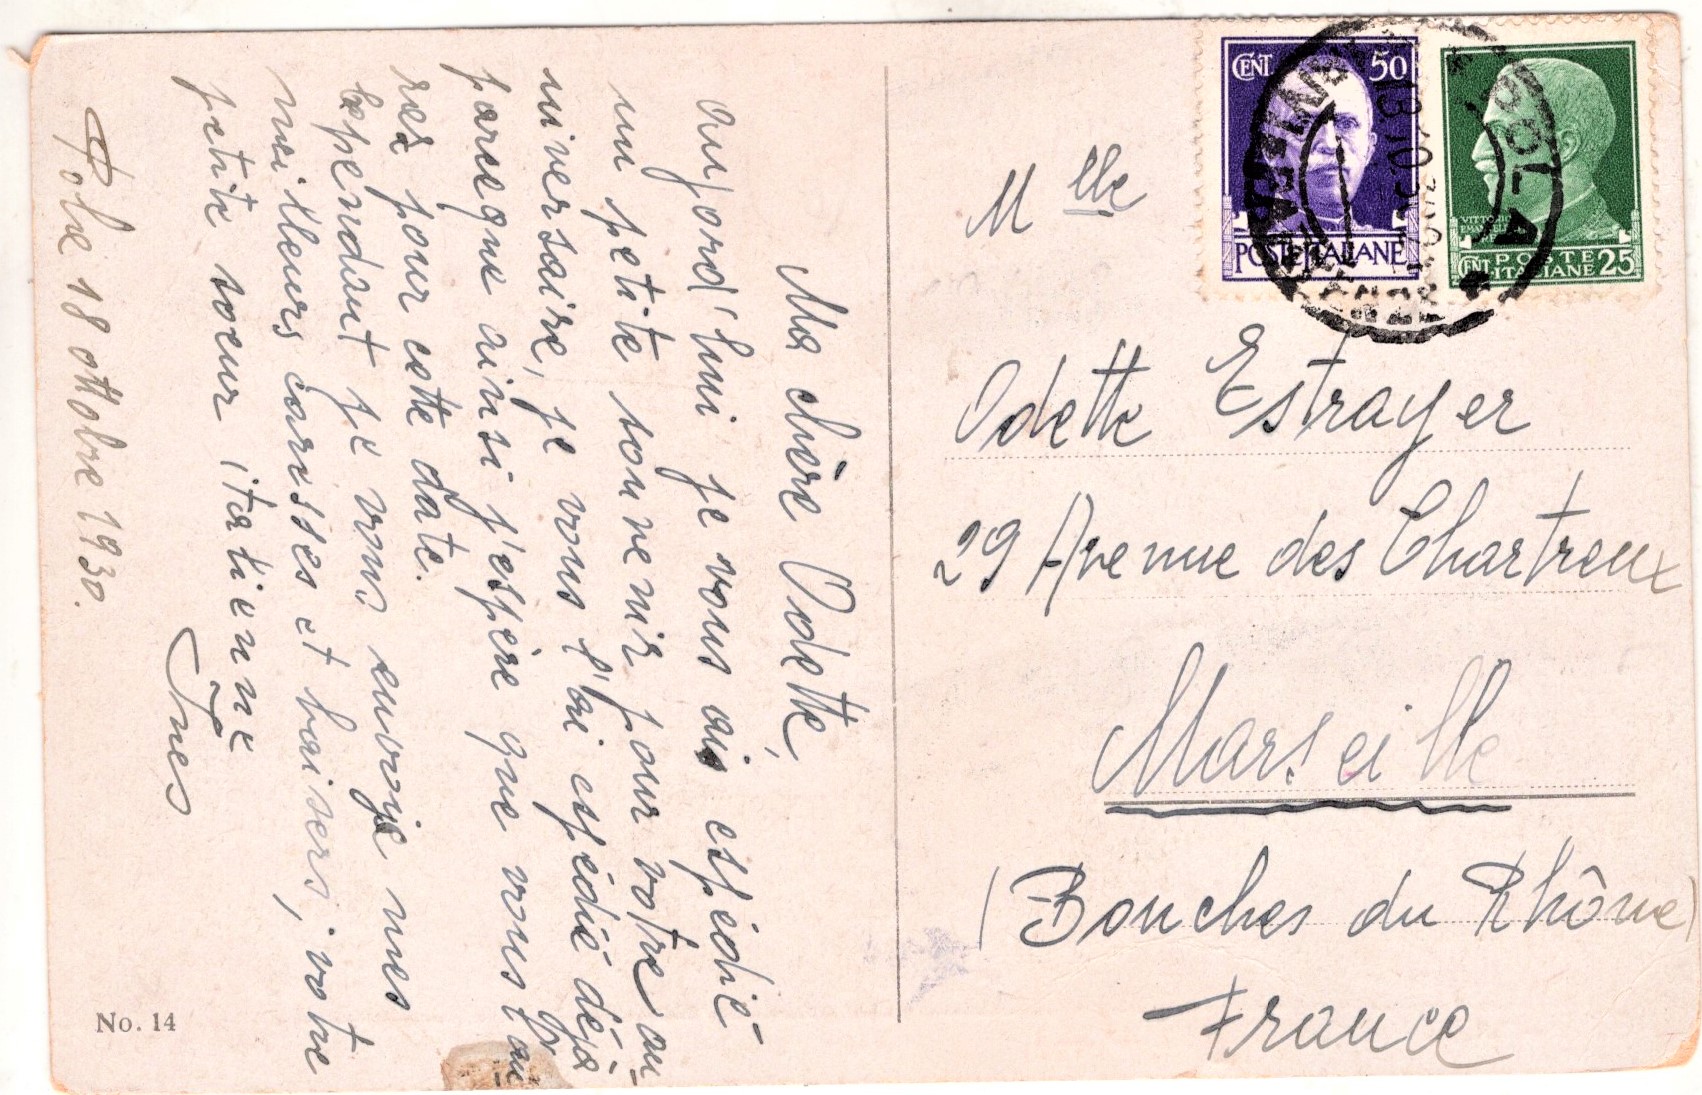 Ma chère Odette,
aujord'hui je vous ais espédié
un petite souvenir pour votre an-
niversaire, je vous l'ai espédié déjà
pareque ainsi j'espère que vous l'au
rez pour cette date.
Cependant je vous envoie mes
meilleurs caresses et baisers, votre
petite soeur italienne
Ines
Pola 18 ottobre 1930.
No. 14
CENT. 50
POSTE ITALIANE
VITTORIO
POSTE
CENT ITALIANE 25
POLA
Mlle
Odette Estrayer
29 Avenue des Chartreux
Marseille
(Bouches du Rhône)
France